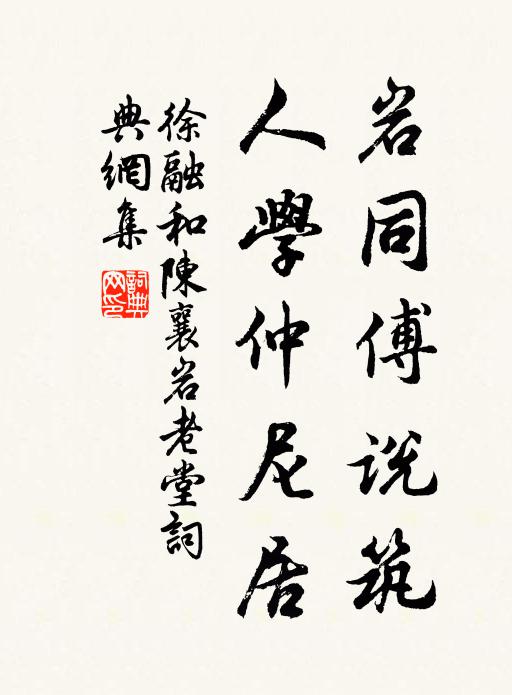 岩同傅说筑
人學仲尼居
徐融和陳襄岩老堂詞
典網集
詞典網印